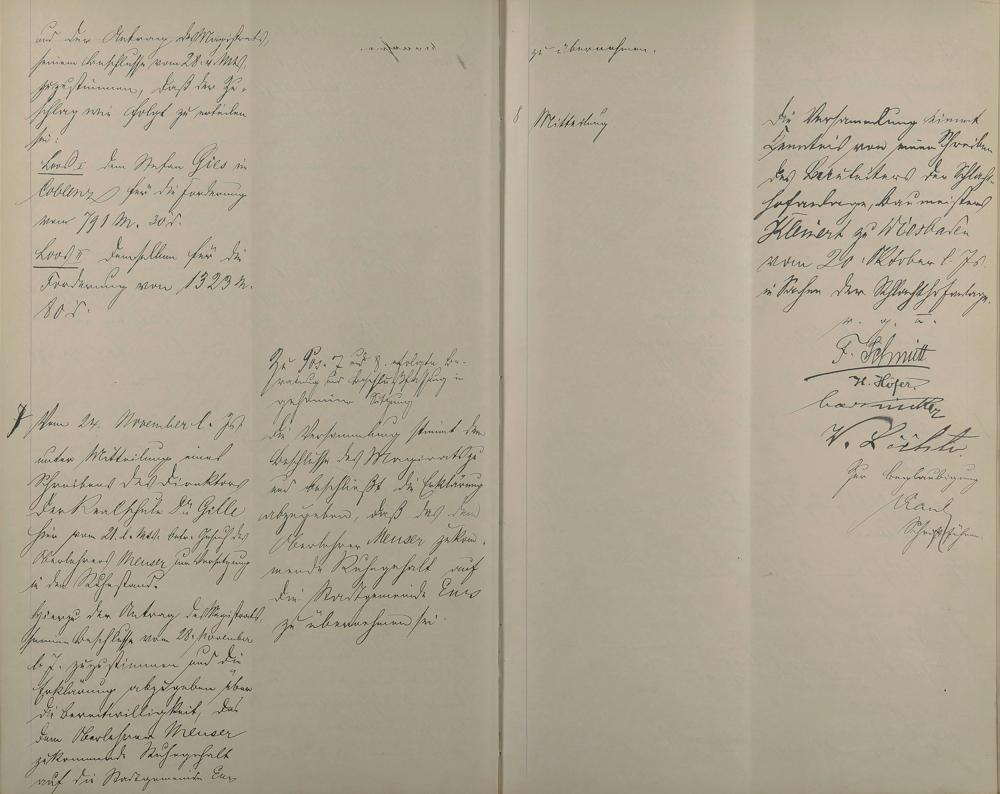 und der Antrag des Magistrats,
seinem Beschlusse vom 28. v. Mts.
zuzustimmen, daß der Zu-
schlag wie folgt zu erteilen
sei:
Loos I dem Stefan Gies in
Coblenz für die Forderung
von 791 M. 30 d.
Loos II demselben für die
Forderung von 1323 M.
80 d.
7 Vom 24. November l. Js.
unter Mitteilung eines
Schreibens des Direktors
der Realschule Dr. Gille
hier vom 21. l. Mts. betr. Gesuch des
Oberlehrers Menser zur Versetzung
in den Ruhestand.
Hierzu der Antrag des Magistrats,
seinem Beschlusse vom 28. November
l. J. zuzustimmen und die
Erklärung abzugeben über
die Bereitwilligkeit, das
dem Oberlehrer Menser
zukommende Ruhegehalt
auf die Stadtgemeinde Ems
Zu Pos. 7 und 8 erfolgte Be-
ratung und Beschlußfassung in
geheimer Sitzung
Die Versammlung stimmt dem
Beschlusse des Magistrats zu
und beschließt die Erklärung
abzugeben, daß das dem
Oberlehrer Menser zukom-
mende Ruhegehalt auf
die Stadtgemeinde Ems
zu übernehmen sei.
zu übernehmen.
8 Mitteilung
Die Versammlung nimmt
Kenntnis von einem Schreiben
des Bauleiters der Schlacht-
hofanlage, Baumeisters
Kleinert zu Wiesbaden
vom 20. Oktober l. Js.
in Sachen der Schlachthofanlage.
v. g. u.
F. Schmitt
H. Höfer.
Zur Beglaubigung
Schriftführer.